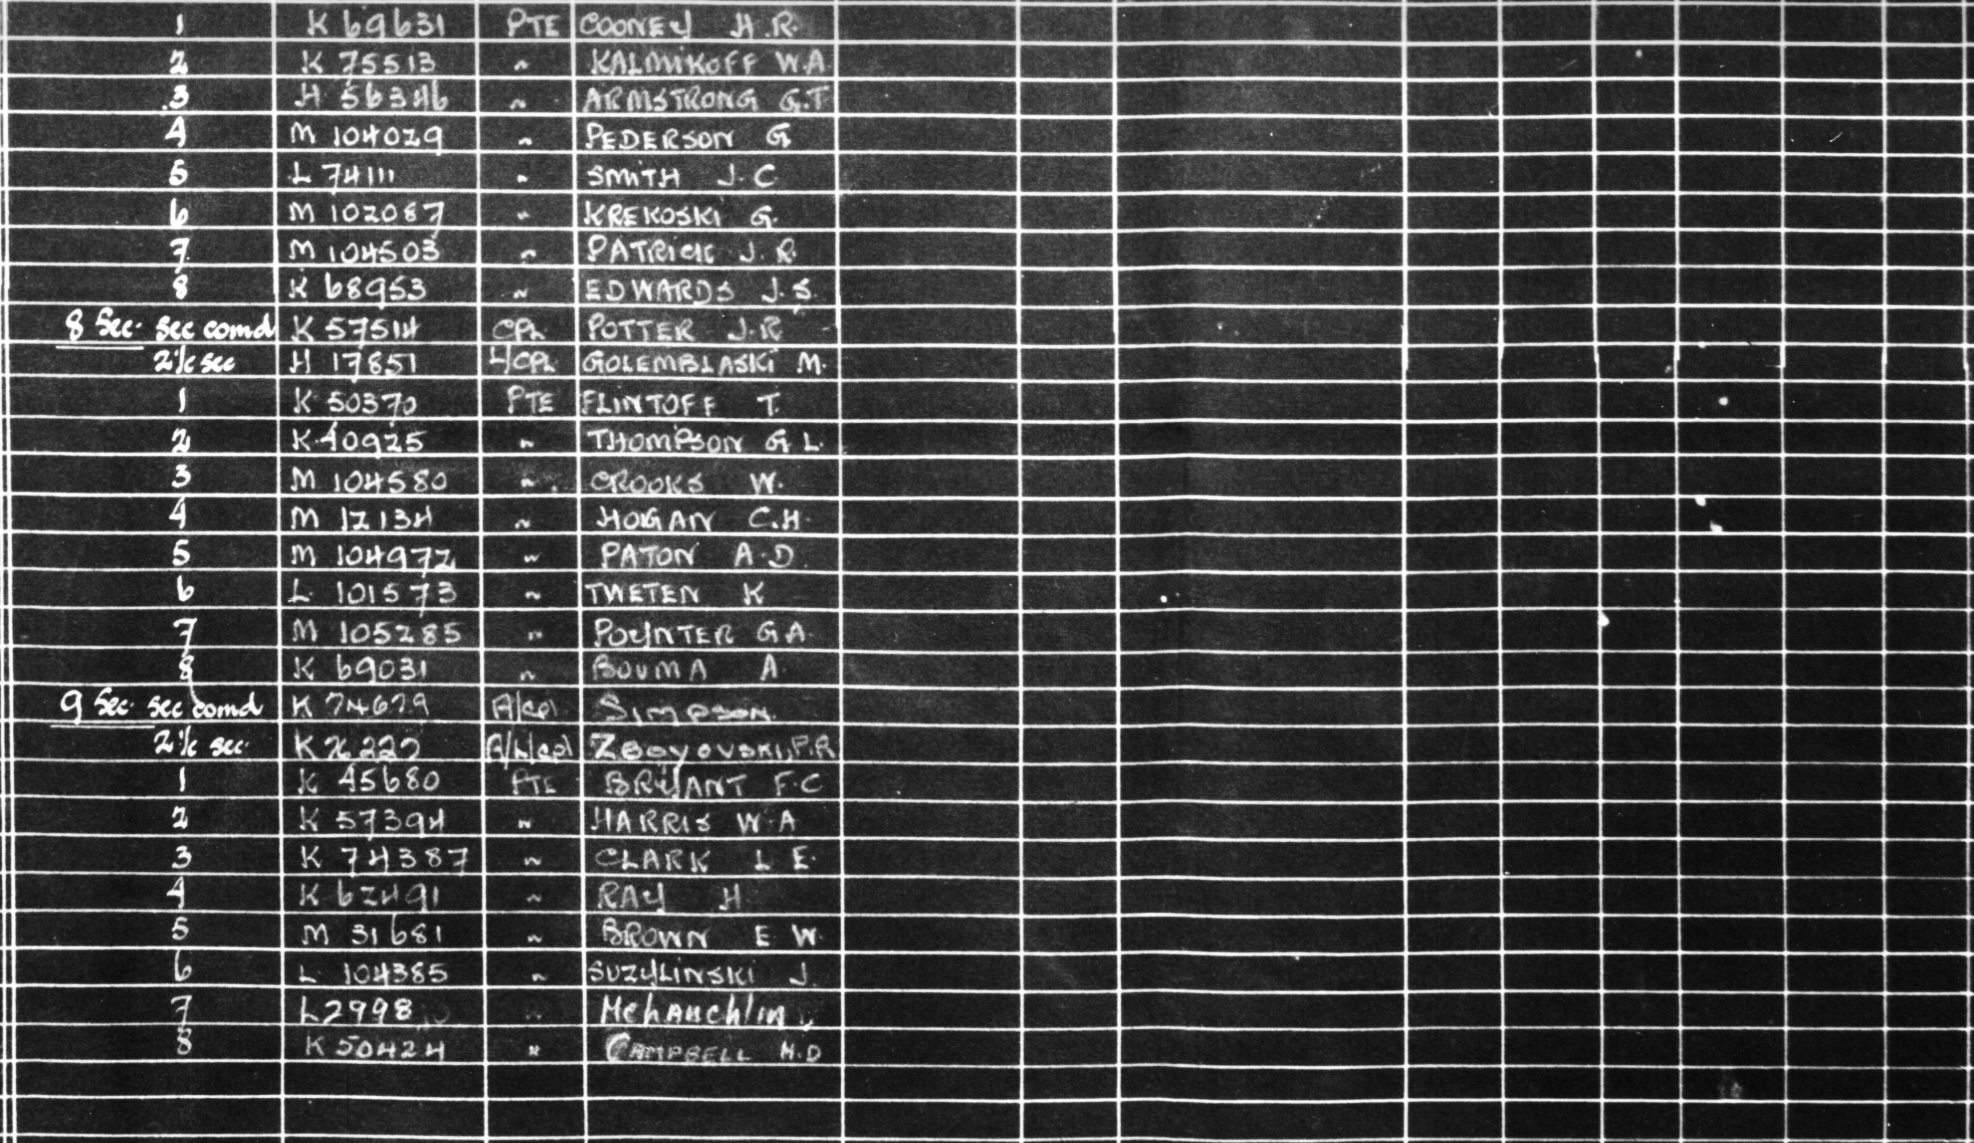 1 K 69631 PTE COONEY H.R.
2 K 75513 " KALMIKOFF W.A.
3 H 56346 " ARMSTRONG G.T
4 M 104029 " PEDERSON G
5 L 74111 " SMITH J.C
6 M 102087 " KREKOSKI G.
7 M 104503 " PATRICK J.R.
8 K 68953 " EDWARDS J.S.
8 Sec. sec comd K 57514 CPL POTTER J.R
2i/c sec H 17851 L/CPL GOLEMBLASKI M.
1 K 50370 PTE FLINTOFF T.
2 K 40925 " THOMPSON G L.
3 M 104580 " CROOKS W.
4 M 12134 " HOGAN C.H.
5 M 104972 " PATON A.D.
6 L 101573 " TWETEN K
7 M 105285 " POYNTER G A.
8 K 69031 " BOUMA A
9 Sec. sec comd K 74679 A/Cpl SIMPSON
2i/c sec. A/L/Cpl ZBOYOVSKI, P.R
1 K 45680 PTE BRYANT F.C
2 K 57394 " HARRIS W.A
3 K 74387 " CLARK L E.
4 K 62491 " RAY H
5 M 31681 " BROWN E W.
6 L 104385 " SUZYLINSKI J.
7 L2998 "
8 K 50424 " CAMPBELL H.D